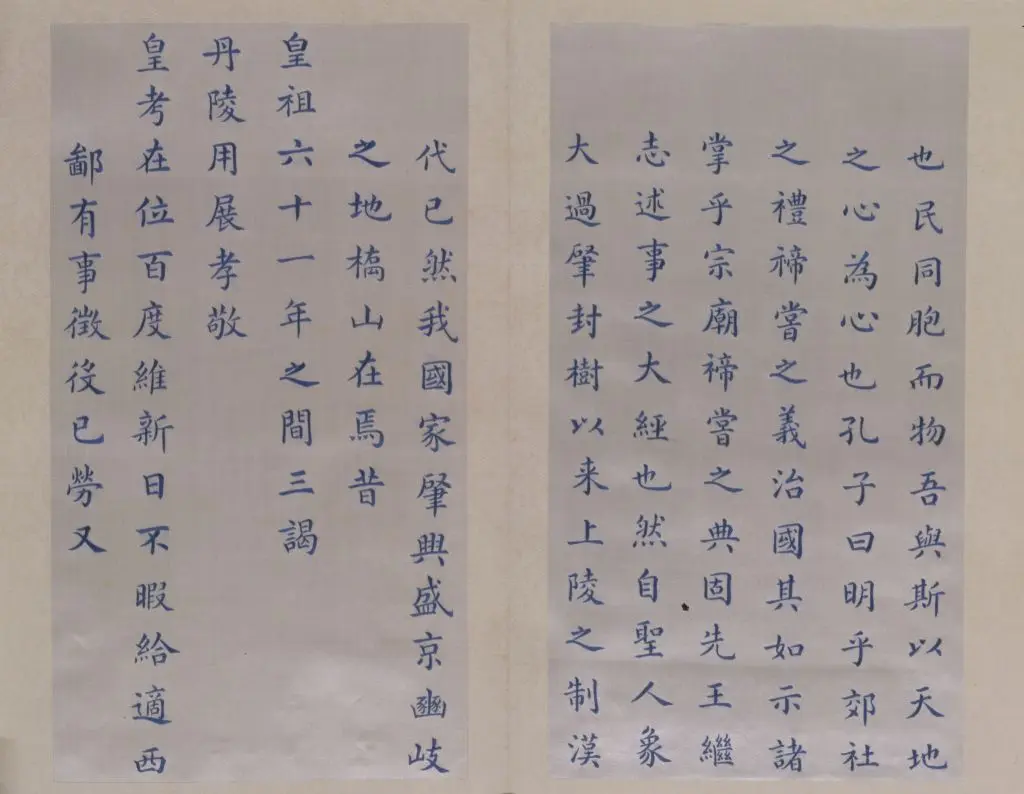 也民同胞而物吾與斯以天地
之心為心也孔子曰明乎郊社
之禮禘嘗之義治國其如示諸
掌乎宗廟禘嘗之典固先王繼
志述事之大經也然自聖人象
大過肈封樹以来上陵之制漢
代已然我國家肈興盛京豳岐
之地橋山在焉昔
皇祖六十一年之間三謁
丹陵用展孝敬
皇考在位百度維新日不暇給適西
鄙有事徴役已勞又